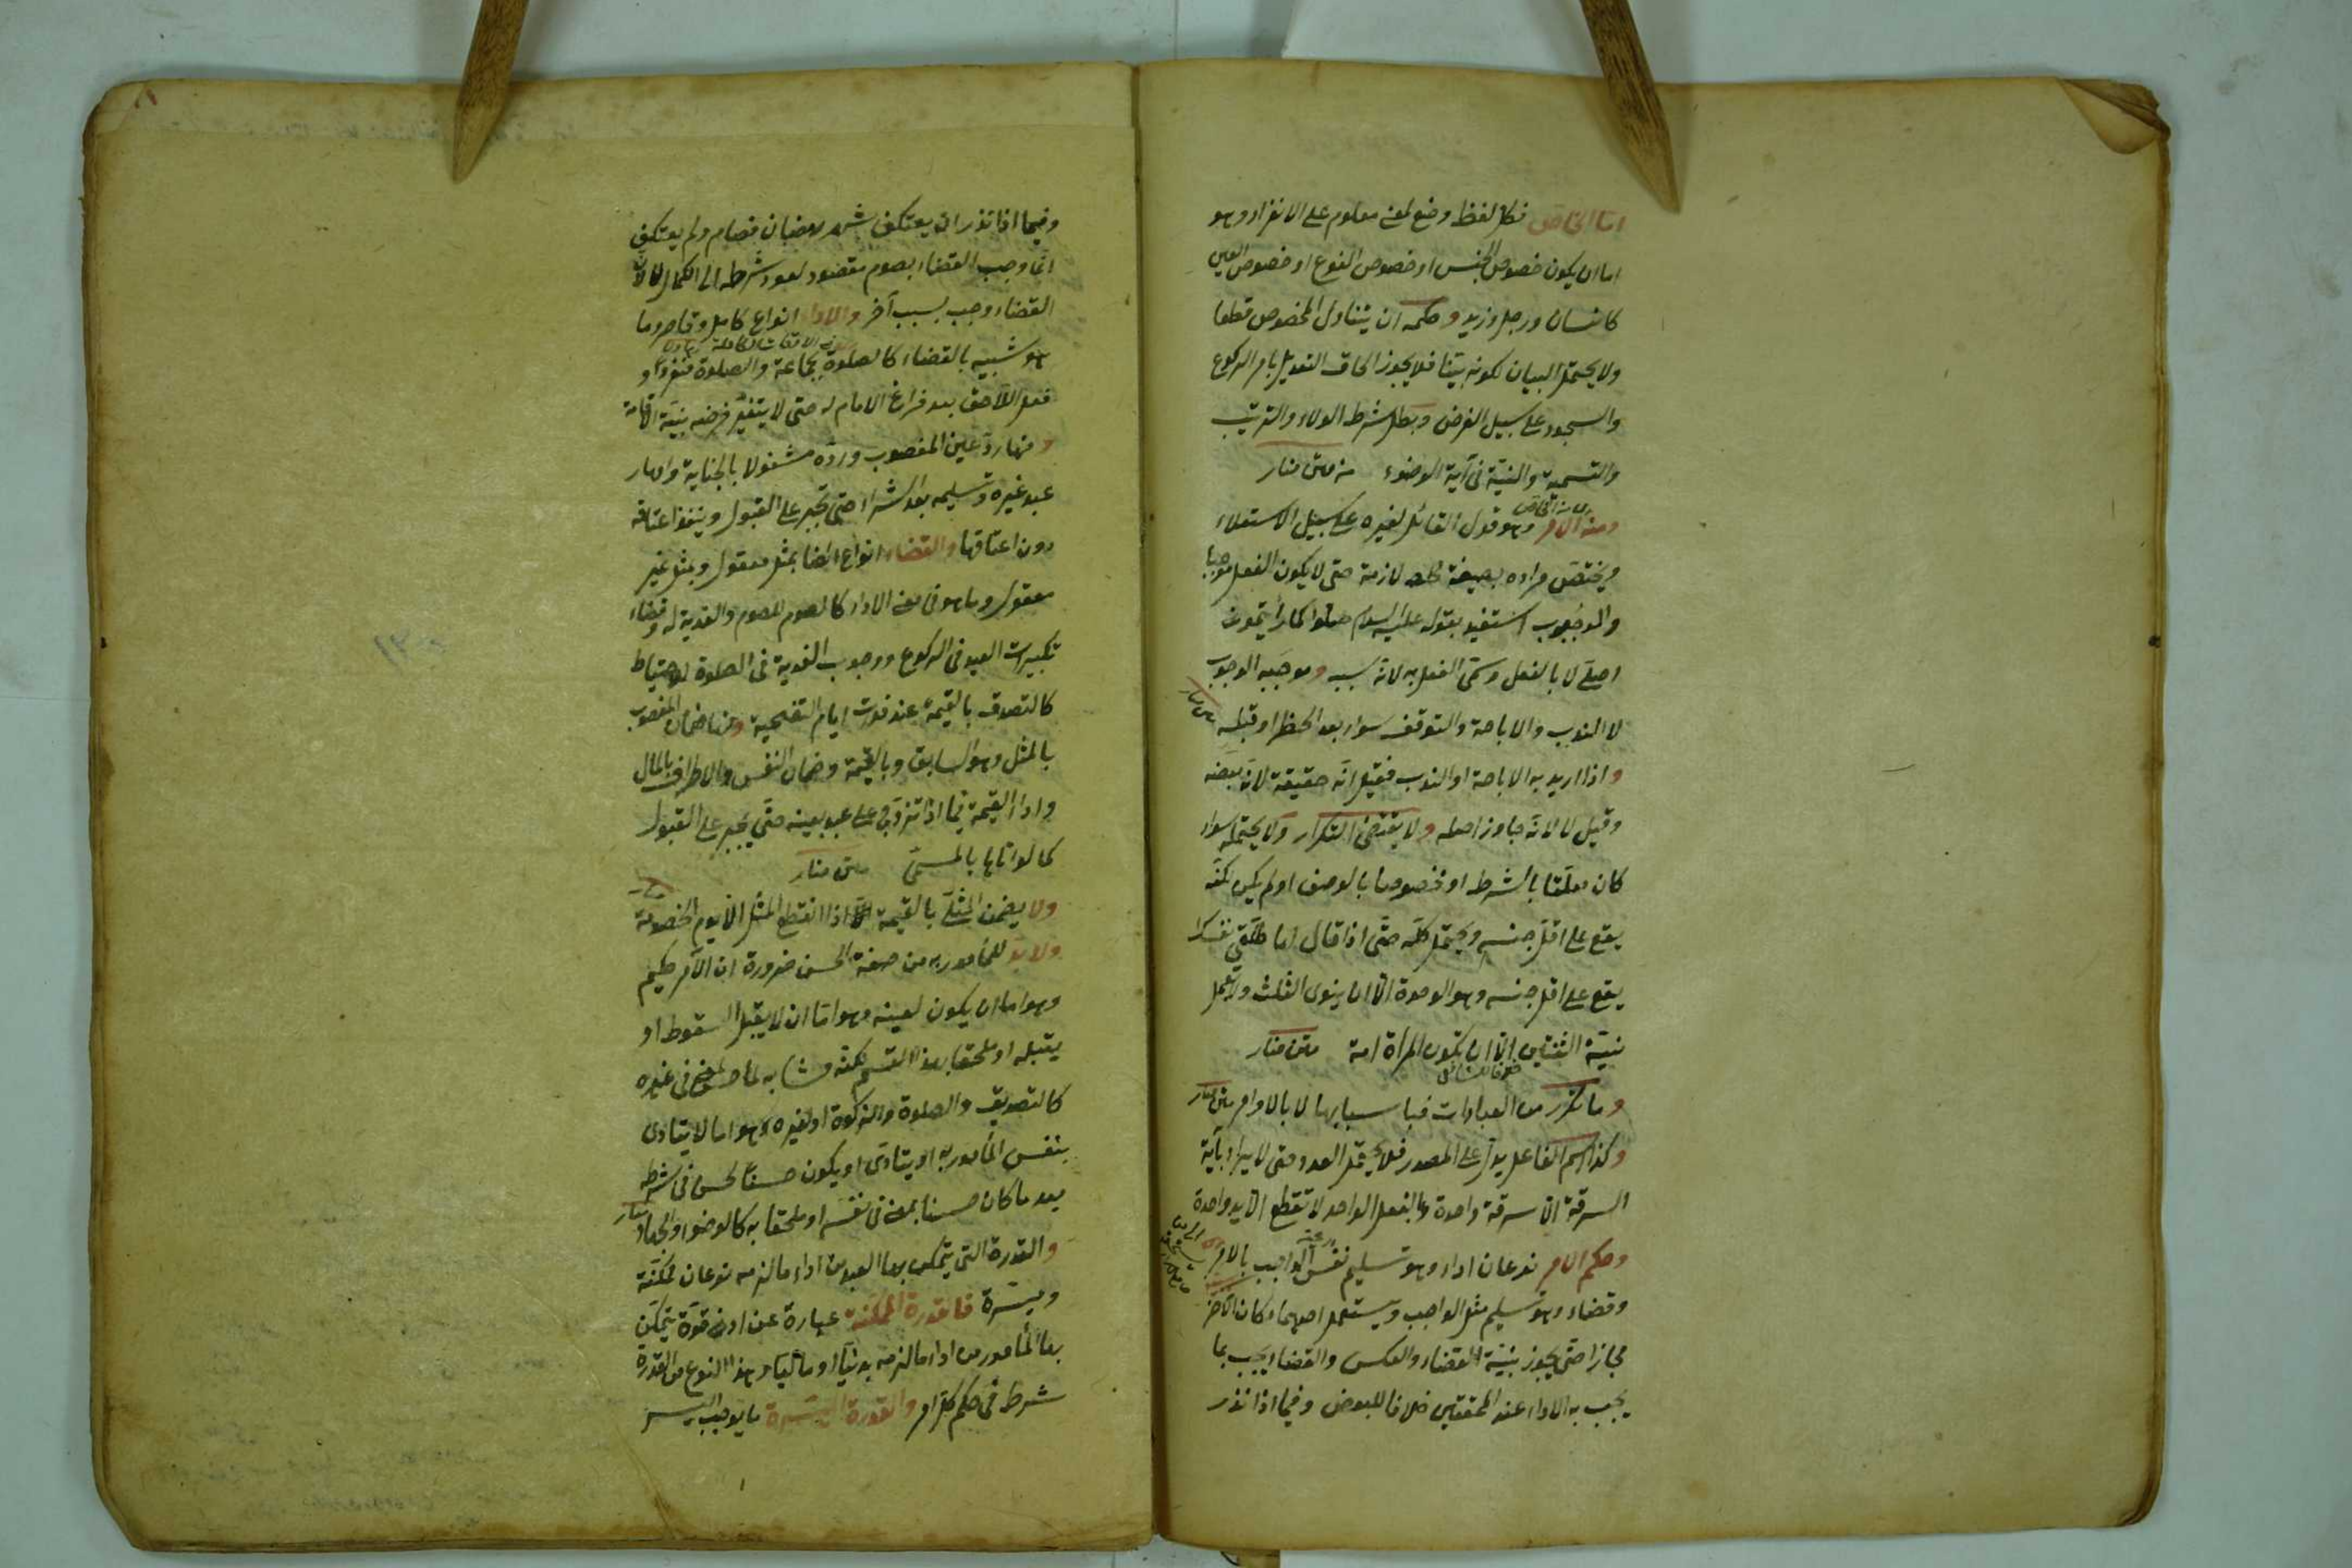 اما الخاص فكل لفظ وضع لمعنى معلوم على الانفراد وهو
اما ان يكون خصوص الجنس او خصوص النوع او خصوص العين
كانسان ورجل وزيد وحكمه ان يتناول المخصوص قطعا
ولا يحتمل البيان لكونه بيّنا فلا يجوز الحاق التعديل بامر الركوع
والسجود على سبيل الفرض وبطل شرط الولاء والترتيب
والتسمية والنية فى آية الوضوء من متن منار
ومنه الامر وهو قول القائل لغيره على سبيل الاستعلاء
ويختص مراده بصيغة لازمة حتى لا يكون الفعل موجبا
والوجوب استفيد بقوله عليه السلام صلوا كما رأيتمونى
اصلى لا بالفعل وسمى الفعل به لانه سببه وموجبه الوجوب
لا الندب والاباحة والتوقف سواء بعد الحظر او قبله
واذا اريد به الاباحة او الندب فقيل انّه حقيقة لانّه بعضه
وقيل لا لانّه جاوز اصله ولا يقتضى التكرار ولا يحتمله سواء
كان معلّقا بالشرط او مخصوصا بالوصف او لم يكن لكنّه
يقع على اقلّ جنسه ويحتمل كلّه حتّى اذا قال لها طلّقى نفسك
يقع على اقل جنسه وهو الوحدة الّا ان ينوى الثلث ولا تعمل
نيّة الثنتين الّا ان تكون المرأة امة متن منار
خلافا للشافعى
وما تكرر من العبادات فباسبابها لا بالاوامر متن منار
وكذا اسم الفاعل يدلّ على المصدر فلا يحتمل العدد حتى لا يراد بآية
السرقة الّا سرقة واحدة وبالفعل الواحد لا تقطع الّا يد واحدة
وحكم الامر نوعان اداء وهو تسليم نفس الواجب بالامر
وقضاء وهو تسليم مثل الواجب ويستعمل احدهما مكان الآخر
مجازا حتّى يجوز بنيّة القضاء والعكس والقضاء يجب بما
يجب به الاداء عند المحققين خلافا للبعض وفيما اذا نذر
وفيما اذا نذر ان يعتكف شهر رمضان فصام ولم يعتكف
انّما وجب القضاء بصوم مقصود لعود شرطه الى الكمال لا لانّ
القضاء وجب بسبب آخر والاداء انواع كامل وقاصر وما
هو شبيه بالقضاء كالصلوة بجماعة والصلوة منفردا و
فعل اللاحق بعد فراغ الامام له حتى لا يتغيّر فرضه بنيّة الاقامة
ومنها ردّ عين المغصوب وردّه مشغولا بالجناية وامهار
عبد غيره وتسليمه بعد الشراء حتى تجبر على القبول وينفذ اعتاقه
دون اعتاقها والقضاء انواع ايضا بمثل معقول وبمثل غير
معقول وما هو فى معنى الاداء كالصوم للصوم والفدية له وقضاء
تكبيرات العيد فى الركوع ووجوب الفدية فى الصلوة للاحتياط
كالتصدق بالقيمة عند فوت ايام التضحية ومنها ضمان المغصوب
بالمثل وهو السابق وبالقيمة وضمان النفس والاطراف بالمال
واداء القيمة فيما اذا تزوّج على عبد بعينه حتّى تجبر على القبول
كما لو اتاها بالمسمّى متن منار
ولا يضمن المثلىّ بالقيمة اذا انقطع المثل الّا يوم الخصومة منار
ولا بدّ للمأمور به من صفة الحسن ضرورة ان الآمر حكيم
وهو اما ان يكون لعينه وهو امّا ان لا يقبل السقوط او
يقبله او ملحقا بهذا القسم لكنّه مشابه لما حسن لمعنى فى غيره
كالتصديق والصلوة والزكوة او لغيره وهو اما لا يتادى
بنفس المأمور به او يتادّى او يكون حسنا لحسن فى شرطه
بعد ما كان حسنا لمعنى فى نفسه او ملحقا به كالوضوء والجهاد منار
والقدرة التى يتمكن بها العبد من اداء ما لزمه نوعان ممكنّة
وميسّرة فالقدرة الممكّنة عبارة عن ادنى قوّة يتمكّن
بها المأمور من اداء ما لزمه بدنيّا او ماليّا وهذا النوع من القدرة
شرط فى حكم كلّ امر والقدرة الميسّرة ما يوجب اليسر